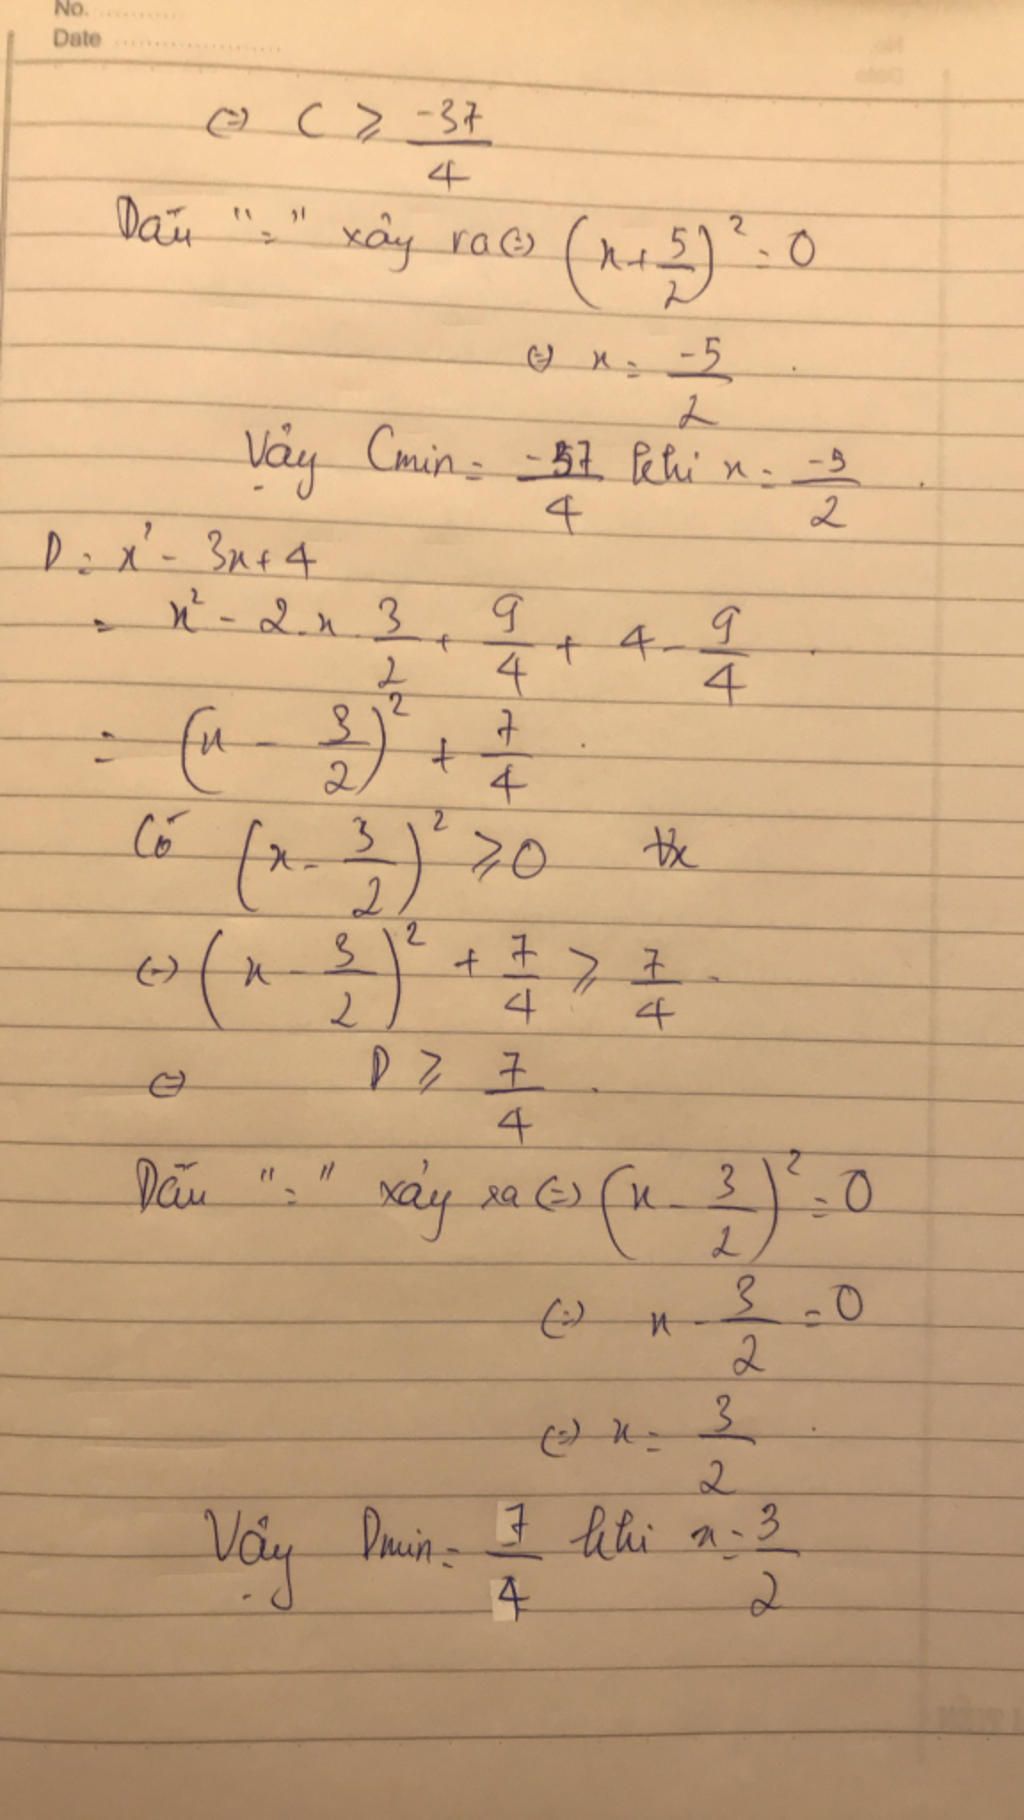 No. ............
Date ......................
⇔ C ⩾ -37/4
Dấu "=" xảy ra ⇔ (x + 5/2)² = 0
⇔ x = -5/2.
Vậy Cmin = -37/4 khi x = -5/2.
D = x² - 3x + 4
= x² - 2.x.3/2 + 9/4 + 4 - 9/4.
= (x - 3/2)² + 7/4.
Có (x - 3/2)² ⩾ 0 ∀x
⇔ (x - 3/2)² + 7/4 ⩾ 7/4.
⇔ D ⩾ 7/4.
Dấu "=" xảy ra ⇔ (x - 3/2)² = 0
⇔ x - 3/2 = 0
⇔ x = 3/2.
Vậy Dmin = 7/4 khi x = 3/2